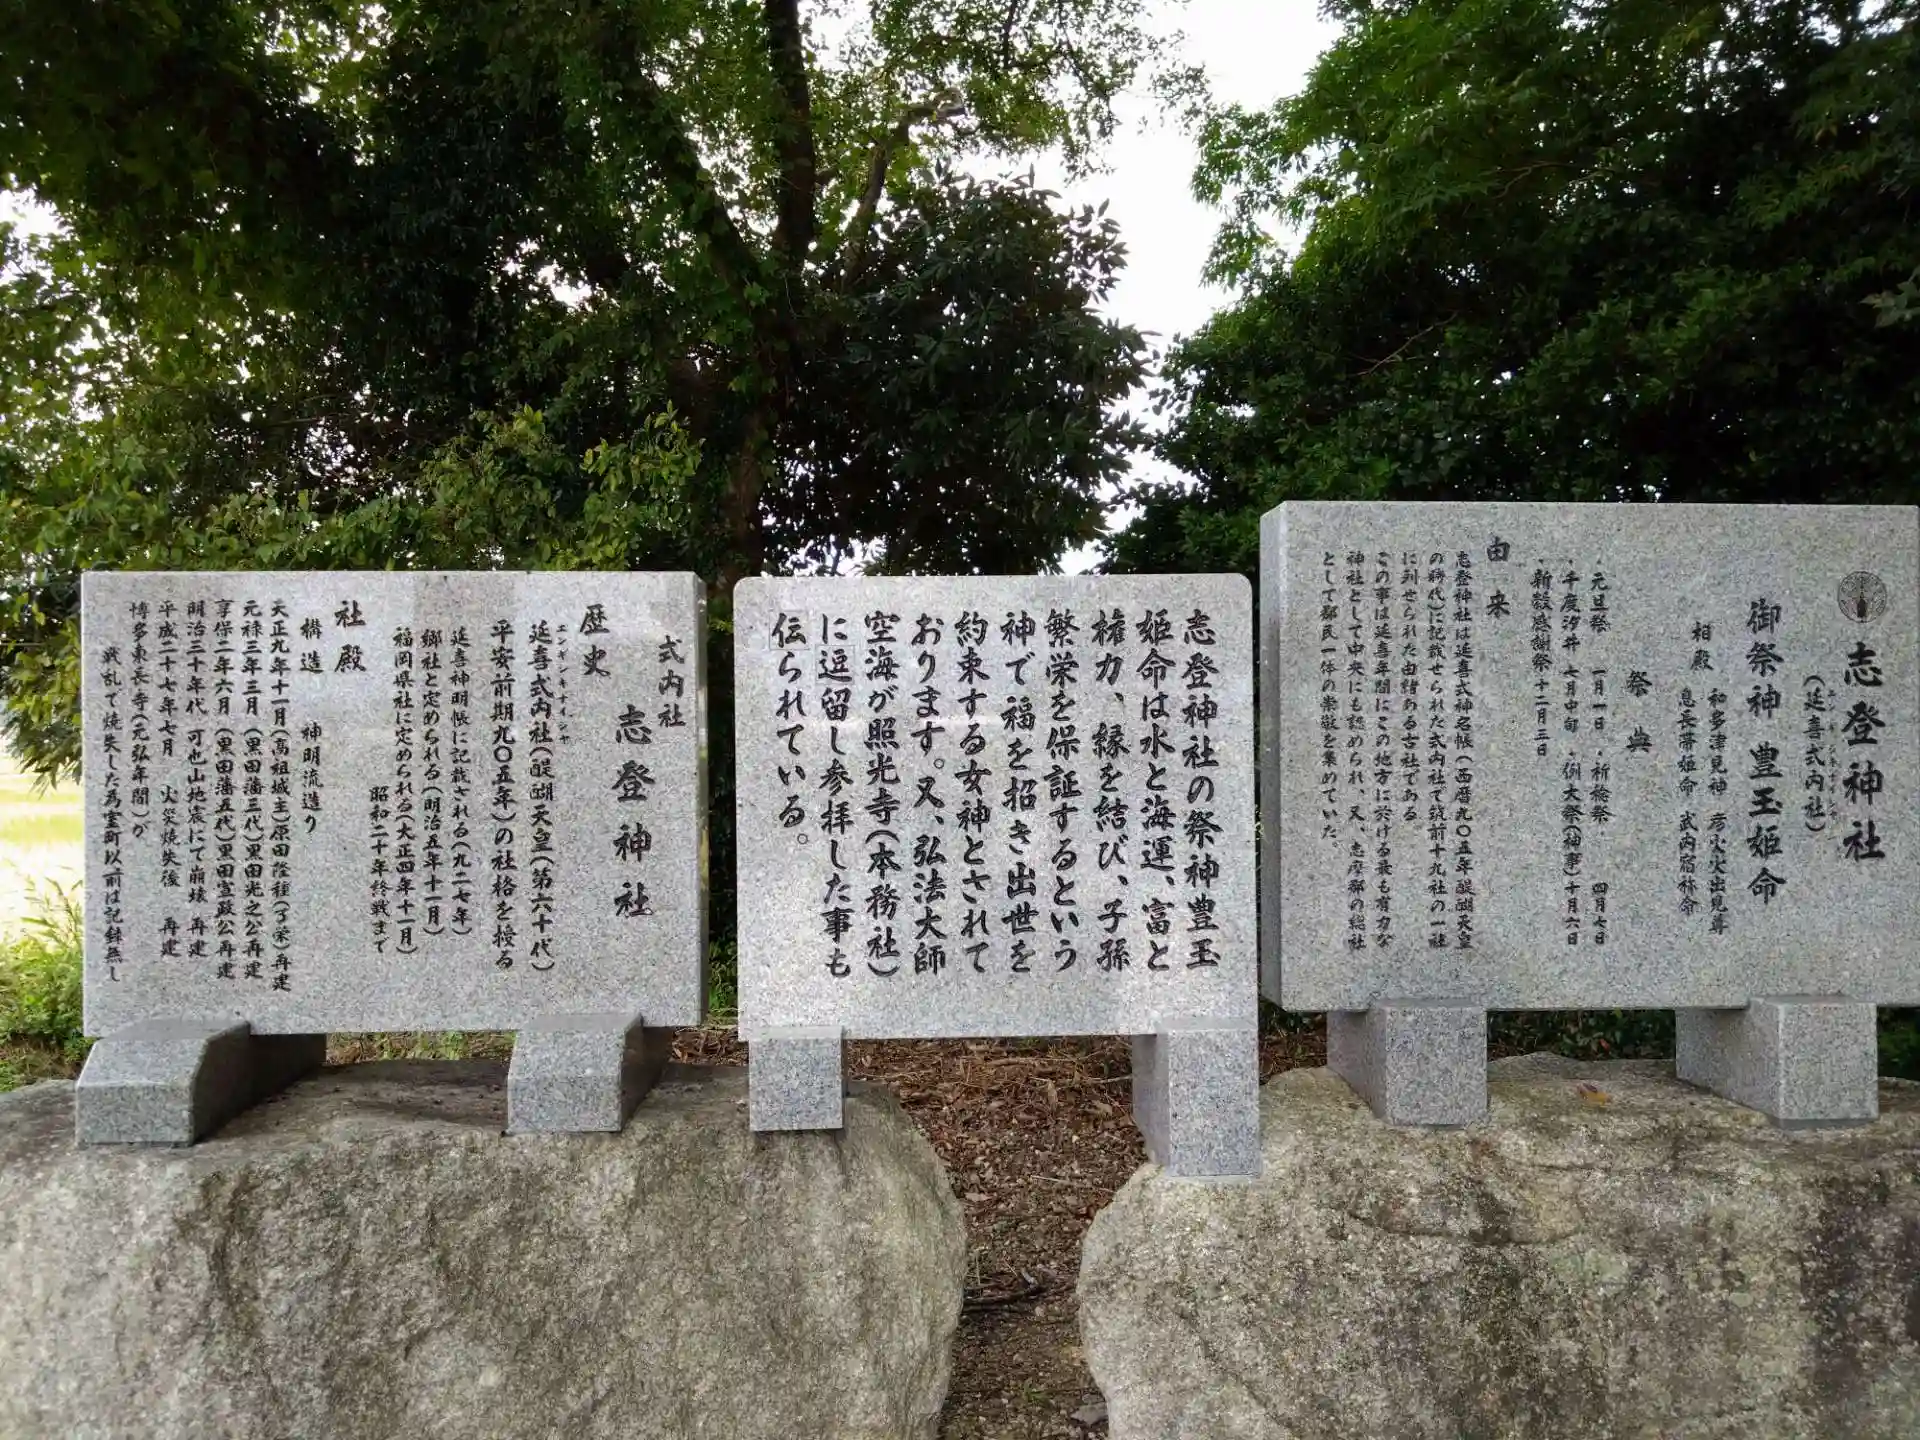 志登神社
(延喜式内社)
エンギシキナイシャ
御祭神 豊玉姫命
相殿 和多津見神 彦火火出見尊
息長帯姫命 武内宿祢命
祭典
・元旦祭 一月一日 ・祈稔祭 四月七日
・千度汐井 七月中旬 ・例大祭(神事)十月六日
・新穀感謝祭 十二月三日
由来
志登神社は延喜式神名帳(西暦九〇五年醍醐天皇
の時代)に記載せられた式内社で筑前十九社の一社
に列せられた由緒ある古社である
この事は延喜年間にこの地方に於ける最も有力な
神社として中央にも認められ、又、志摩郡の総社
として郡民一体の崇敬を集めていた。
志登神社の祭神豊玉
姫命は水と海運、富と
権力、縁を結び、子孫
繁栄を保証するという
神で福を招き出世を
約束する女神とされて
おります。又、弘法大師
空海が照光寺(本務社)
に逗留し参拝した事も
伝られている。
式内社
志登神社
歴史
エンギシキナイシヤ
延喜式内社(醍醐天皇(第六十代)
平安前期九〇五年)の社格を授る
延喜神明帳に記載される(九二七年)
郷社と定められる(明治五年十一月)
福岡県社に定められる(大正四年十一月)
昭和二十年終戦まで
社殿
構造 神明流造り
天正九年十一月(高祖城主)原田隆種(了栄)再建
元禄三年三月(黒田藩三代)黒田光之公再建
享保二年六月(黒田藩五代)黒田宣政公再建
明治三十年代 可也山地震にて崩壊 再建
平成二十七年七月 火災焼失後 再建
博多東長寺(元弘年間)が
戦乱で焼失した為室町以前は記録無し